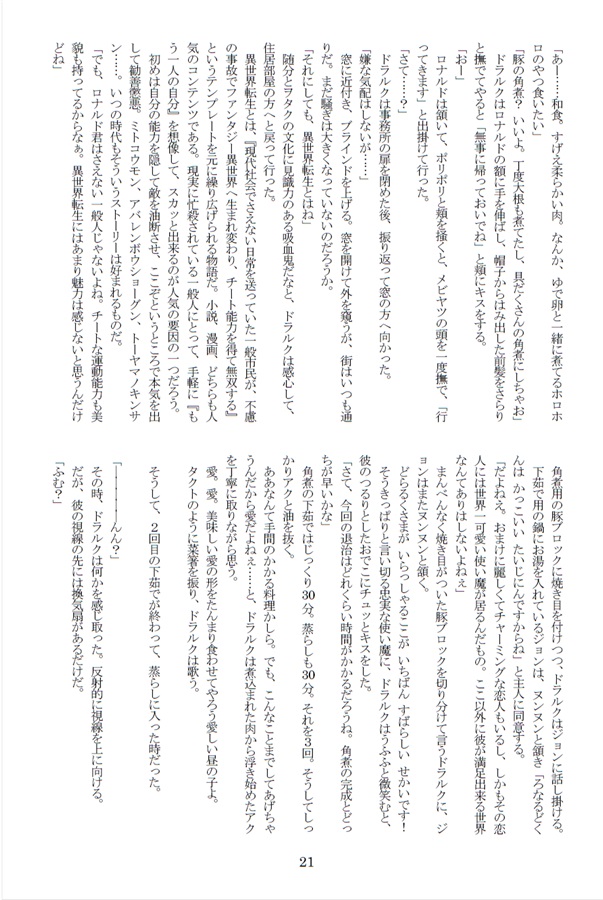 「あー……和食。すげえ柔らかい肉。なんか、ゆで卵と一緒に煮てるホロホ
ロのやつ食いたい」
「豚の角煮？ いいよ。丁度大根も煮てたし、具だくさんの角煮にしちゃお」
ドラルクはロナルドの額に手を伸ばし、帽子からはみ出した前髪をさらり
と撫でてやると「無事に帰っておいでね」と頬にキスをする。
「おー」
ロナルドは頷いて、ポリポリと頬を掻くと、メビヤツの頭を一度撫で、「行
ってきます」と出掛けて行った。
「さて……？」
ドラルクは事務所の扉を閉めた後、振り返って窓の方へ向かった。
「嫌な気配はしないが……」
窓に近付き、ブラインドを上げる。窓を開けて外を窺うが、街はいつも通
りだ。まだ騒ぎは大きくなっていないのだろうか。
「それにしても、異世界転生とはね」
随分とヲタクの文化に見識力のある吸血鬼だなと、ドラルクは感心して、
住居部屋の方へと戻って行った。
異世界転生とは、『現代社会でさえない日常を送っていた一般市民が、不慮
の事故でファンタジー異世界へ生まれ変わり、チート能力を得て無双する』
というテンプレートを元に繰り広げられる物語だ。小説、漫画、どちらも人
気のコンテンツである。現実に忙殺されている一般人にとって、手軽に『も
う一人の自分』を想像して、スカッと出来るのが人気の要因の一つだろう。
初めは自分の能力を隠して敵を油断させ、ここぞというところで本気を出
して勧善懲悪。ミトコウモン、アバレンボウショーグン、トーヤマノキンサ
ン……。いつの時代もそういうストーリーは好まれるものだ。
「でも、ロナルド君はさえない一般人じゃないよね。チートな運動能力も美
貌も持ってるからなぁ。異世界転生にはあまり魅力は感じないと思うんだけ
どね」
角煮用の豚ブロックに焼き目を付けつつ、ドラルクはジョンに話し掛ける。
下茹で用の鍋にお湯を入れているジョンは、ヌンヌンと頷き「ろなるどく
んは かっこいい たいじにんですからね」と主人に同意する。
「だよねえ。おまけに麗しくてチャーミングな恋人もいるし、しかもその恋
人には世界一可愛い使い魔が居るんだもの。ここ以外に彼が満足出来る世界
なんてありはしないよねぇ」
まんべんなく焼き目がついた豚ブロックを切り分けて言うドラルクに、ジ
ョンはまたヌンヌンと頷く。
どらるくさまが いらっしゃるここが いちばん すばらしい せかいです！
そうきっぱりと言い切る忠実な使い魔に、ドラルクはうふふと微笑むと、
彼のつるりとしたおでこにチュッとキスをした。
「さて、今回の退治はどれくらい時間がかかるだろうね。角煮の完成とどっ
ちが早いかな」
角煮の下茹ではじっくり30分。蒸らしも30分。それを3回。そうしてしっ
かりアクと油を抜く。
ああなんて手間のかかる料理かしら。でも、こんなことまでしてあげちゃ
うんだから愛だよねぇ……と、ドラルクは煮込まれた肉から浮き始めたアク
を丁寧に取りながら思う。
愛。愛。美味しい愛の形をたんまり食わせてやろう愛しい昼の子よ。
タクトのように菜箸を振り、ドラルクは歌う。
そうして、2回目の下茹でが終わって、蒸らしに入った時だった。
「――――んん？」
その時、ドラルクは何かを感じ取った。反射的に視線を上に向ける。
だが、彼の視線の先には換気扇があるだけだ。
「ふむ？」
21